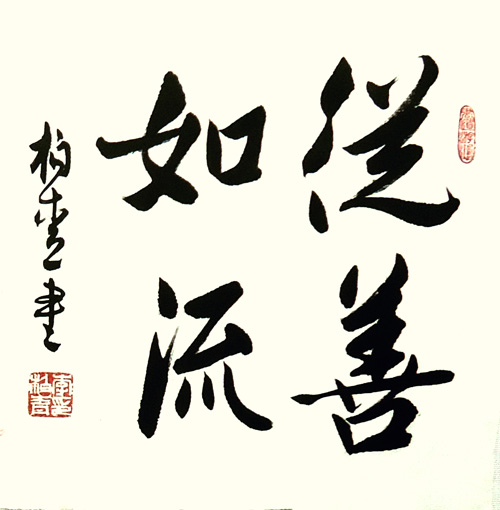 從善
如流
柏壹書